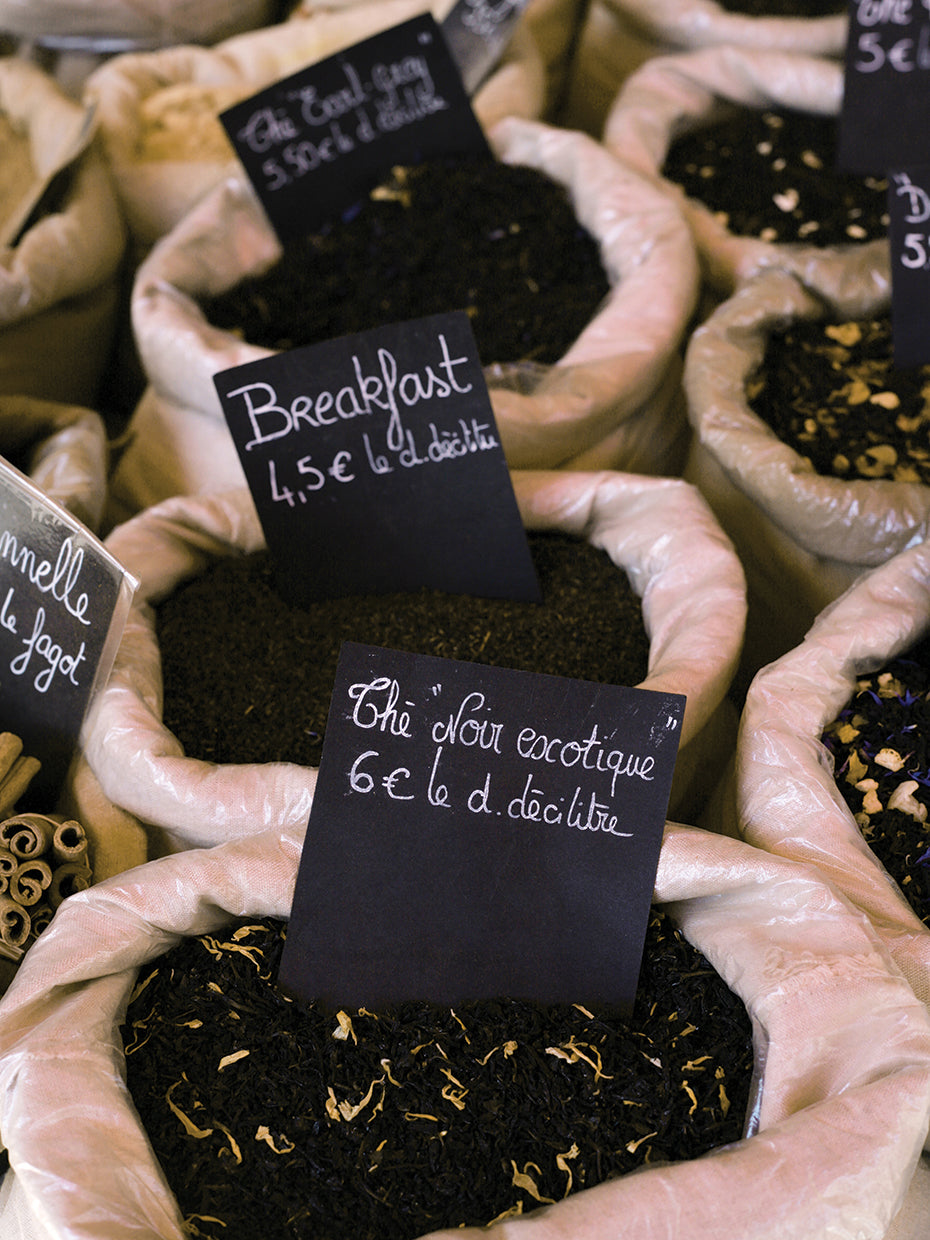 Thé "Earl-Grey"
5,50€ le d. décilitre
5€ le
5
Breakfast
4,5€ le d. décilitre
nnelle
le fagot
Thé "Noir exotique"
6€ le d. décilitre